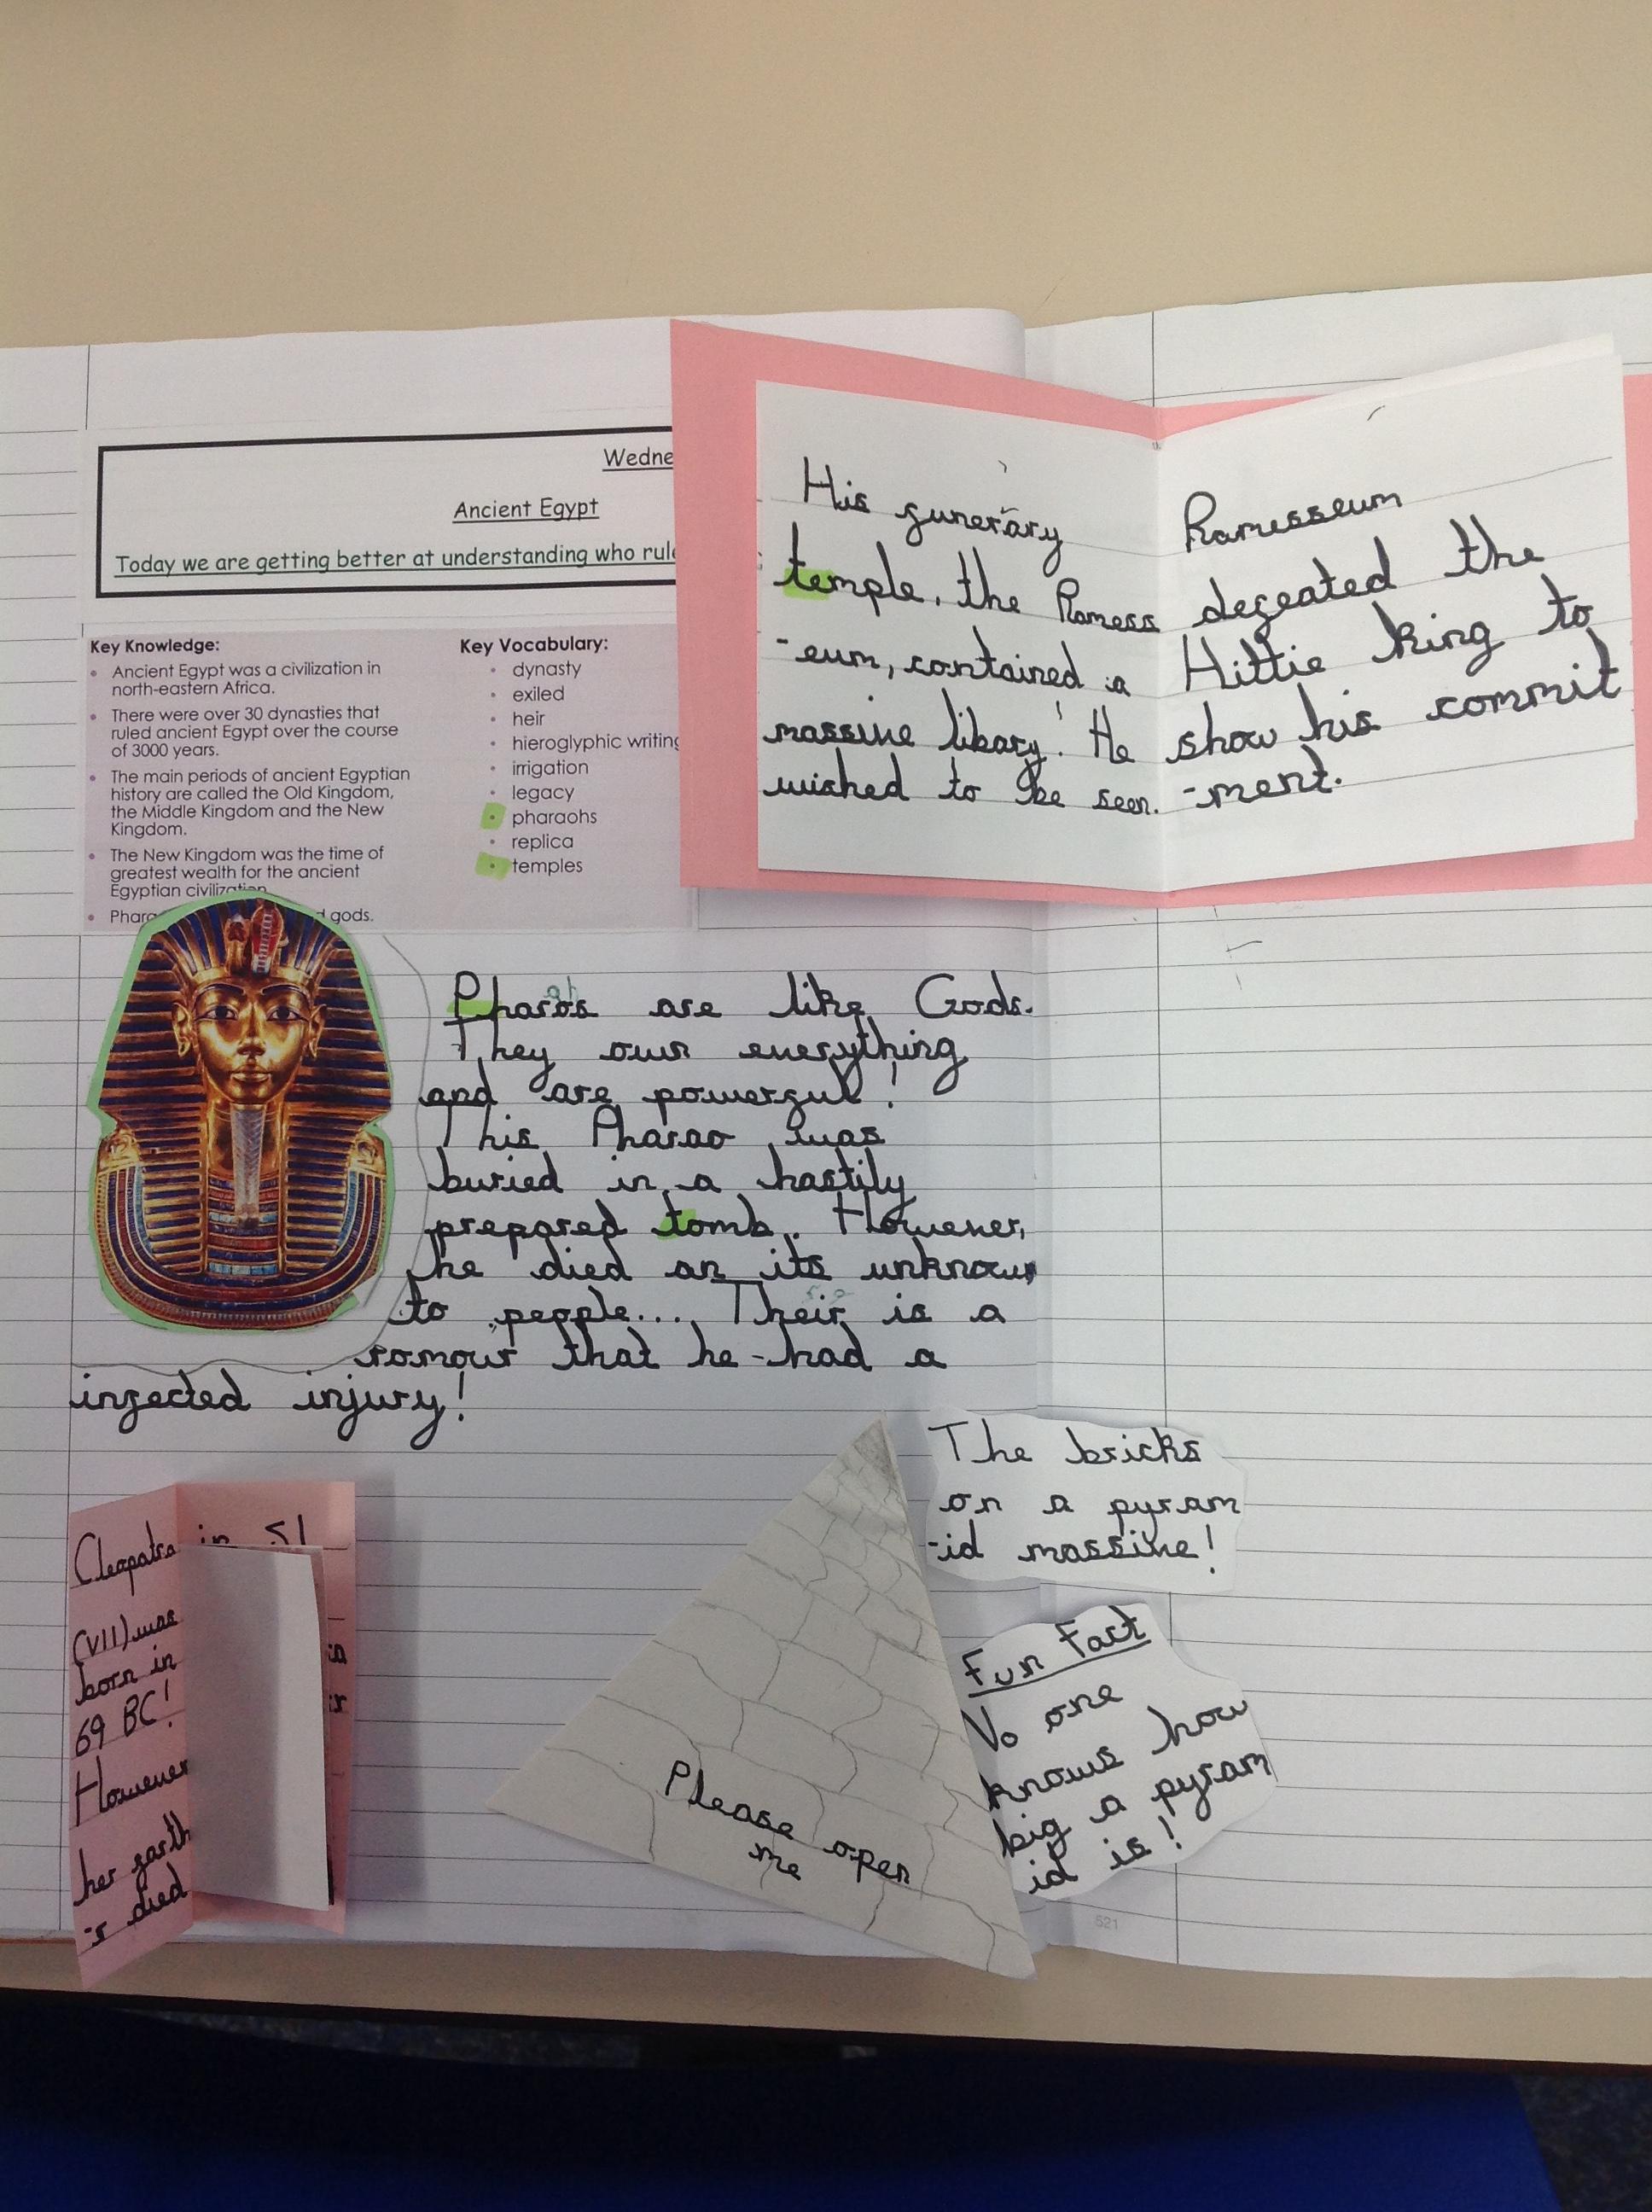 Wedne
Ancient Egypt
Today we are getting better at understanding who rule
Key Knowledge:
Ancient Egypt was a civilization in
north-eastern Africa.
There were over 30 dynasties that
ruled ancient Egypt over the course
of 3000 years.
The main periods of ancient Egyptian
history are called the Old Kingdom,
the Middle Kingdom and the New
Kingdom.
The New Kingdom was the time of
greatest wealth for the ancient
Egyptian civilization
Phara gods.
Key Vocabulary:
dynasty
exiled
heir
hieroglyphic writing
irrigation
legacy
pharaohs
replica
temples
His funerary
temple, the Ramess
-eum, contained a
massive libary! He
wished to be seen.
Ramesseum
defeated the
Hittie king to
show his commit
-ment.
Pharos are like Gods.
They own everything
and are powerful!
This Pharao was
buried in a hastily
prepared tomb. However,
he died an its unknown
to people... Their is a
romour that he-had a
infected injury!
Cleopatra
(VII) was
born in
69 BC!
However
her farth
-r died
in 51
The bricks
on a pyram
-id massive!
Fun Fact
No one
knows how
big a pyram
id is!
Please open
me
521